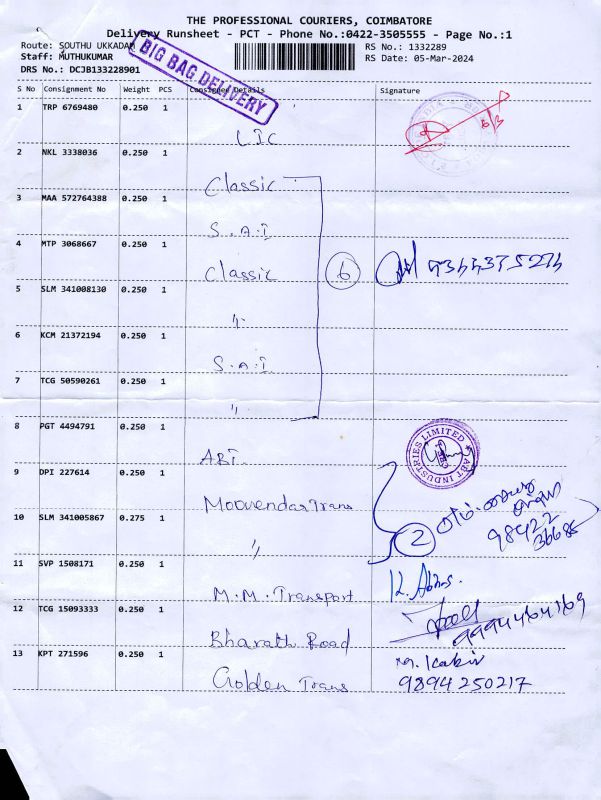 THE PROFESSIONAL COURIERS, COIMBATORE
Delivery Runsheet - PCT - Phone No.:0422-3505555 - Page No.:1
Route: SOUTHU UKKADAM
RS No.: 1332289
Staff: MUTHUKUMAR
RS Date: 05-Mar-2024
DRS No.: DCJB133228901
BIG BAG DELIVERY
S No Consignment No Weight PCS Consignee Details Signature
1 TRP 6769480 0.250 1 LIC
2 NKL 3338036 0.250 1 Classic
3 MAA 572764388 0.250 1 S.A.I
4 MTP 3068667 0.250 1 Classic 6
5 SLM 341008130 0.250 1 〃
6 KCM 21372194 0.250 1 S.A.I
7 TCG 50590261 0.250 1 〃
8 PGT 4494791 0.250 1 ABT
ABT INDUSTRIES LIMITED
9 DPI 227614 0.250 1 Moovendar Trans
10 SLM 341005867 0.275 1 〃 2 98422 36686
11 SVP 1508171 0.250 1 M.M. Transport
12 TCG 15093333 0.250 1 Bharath Road
13 KPT 271596 0.250 1 Golden Trans 9894250217